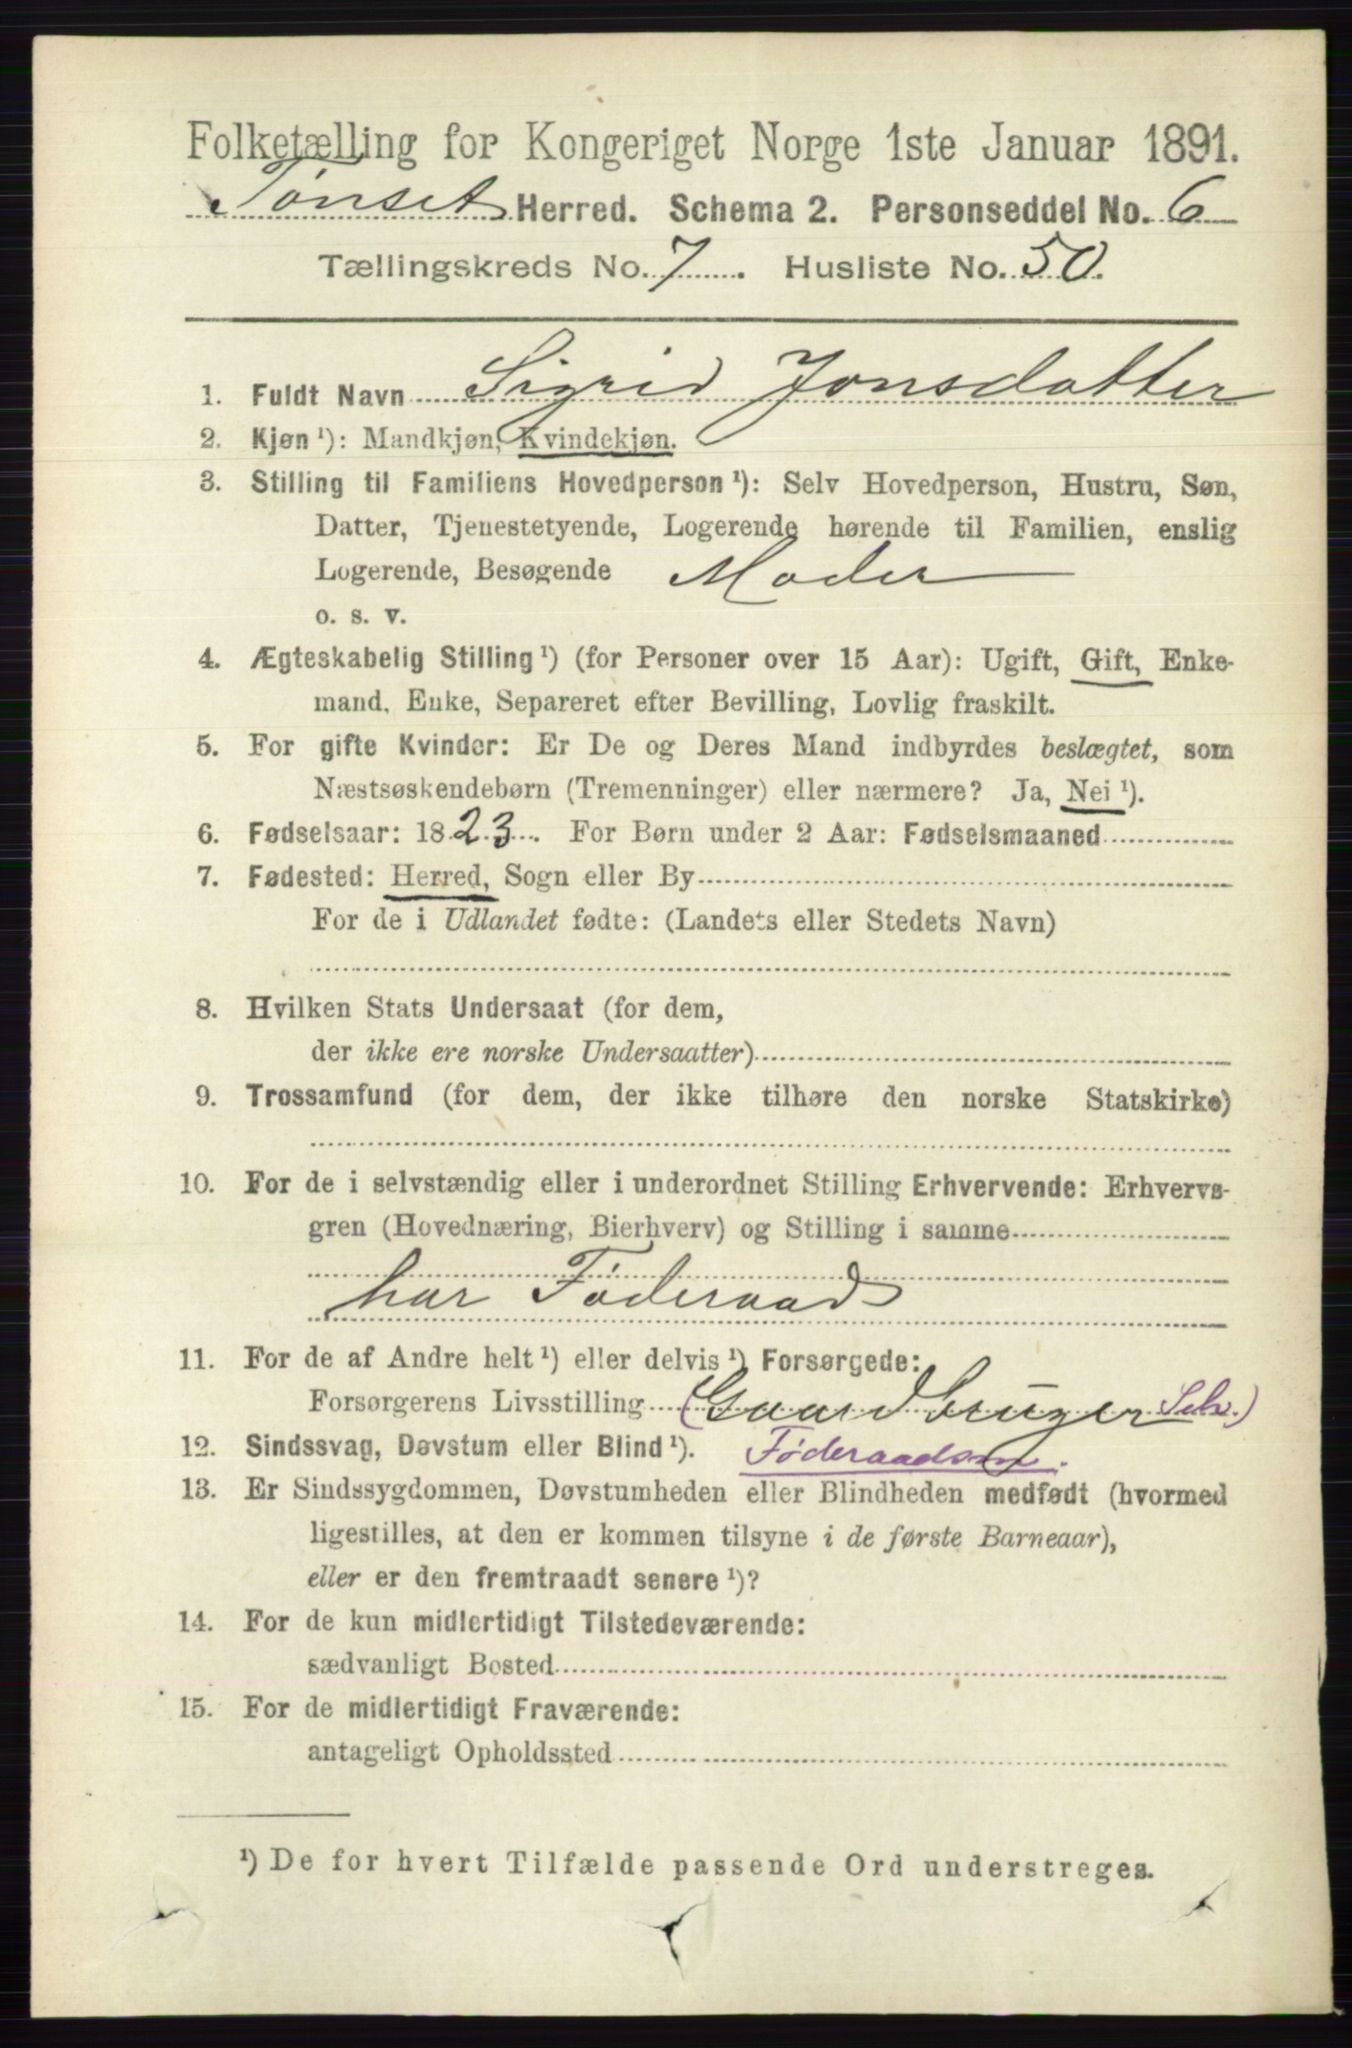 Folketælling for Kongeriget Norge 1ste Januar 1891.
Tønset Herred. Schema 2. Personseddel No. 6
Tællingskreds No. 7. Husliste No. 50.
1. Fuldt Navn Sigrid Jonsdatter
2. Kjøn ¹): Mandkjøn, Kvindekjøn.
3. Stilling til Familiens Hovedperson ¹): Selv Hovedperson, Hustru, Søn,
Datter, Tjenestetyende, Logerende hørende til Familien, enslig
Logerende, Besøgende Moder
o. s. v.
4. Ægteskabelig Stilling ¹) (for Personer over 15 Aar): Ugift, Gift, Enke-
mand, Enke, Separeret efter Bevilling, Lovlig fraskilt.
5. For gifte Kvinder: Er De og Deres Mand indbyrdes beslægtet, som
Næstsøskendebørn (Tremenninger) eller nærmere? Ja, Nei ¹).
6. Fødselsaar: 1823. For Børn under 2 Aar: Fødselsmaaned
7. Fødested: Herred, Sogn eller By
For de i Udlandet fødte: (Landets eller Stedets Navn)
8. Hvilken Stats Undersaat (for dem,
der ikke ere norske Undersaatter)
9. Trossamfund (for dem, der ikke tilhøre den norske Statskirke)
10. For de i selvstændig eller i underordnet Stilling Erhvervende: Erhvervs-
gren (Hovednæring, Bierhverv) og Stilling i samme
har Føderaad
11. For de af Andre helt ¹) eller delvis ¹) Forsørgede:
Forsørgerens Livsstilling (Gaardbruger Selv.)
12. Sindssvag, Døvstum eller Blind ¹). Føderaadsm.
13. Er Sindssygdommen, Døvstumheden eller Blindheden medfødt (hvormed
ligestilles, at den er kommen tilsyne i de første Barneaar),
eller er den fremtraadt senere ¹)?
14. For de kun midlertidigt Tilstedeværende:
sædvanligt Bosted
15. For de midlertidigt Fraværende:
antageligt Opholdssted
¹) De for hvert Tilfælde passende Ord understreges.